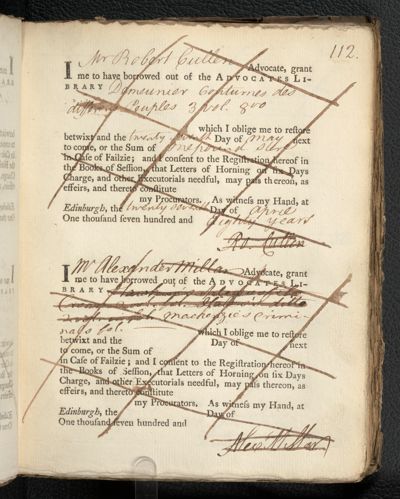 112.
I Mr Robert Cullen Advocate, grant
me to have borrowed out of the ADVOCATES LI-
BRARY Demeunier Coutumes des
differens peuples 3 vol. 8vo
which I oblige me to restore
betwixt and the twenty seventh Day of May next
to come, or the Sum of one pound Ster
in Case of Failzie; and I consent to the Registration hereof in
the Books of Session, that Letters of Horning on six Days
Charge, and other Executorials needful, may pass thereon, as
effeirs, and thereto constitute
my Procurators. As witness my Hand, at
Edinburgh, the twenty seventh Day of April
One thousand seven hundred and Eighty years
Ro. Cullen
I Mr Alexander Millar Advocate, grant
me to have borrowed out of the ADVOCATES LI-
BRARY
Mackenzie's Crimi-
nals fol. which I oblige me to restore
betwixt and the Day of next
to come, or the Sum of
in Case of Failzie; and I consent to the Registration hereof in
the Books of Session, that Letters of Horning on six Days
Charge, and other Executorials needful, may pass thereon, as
effeirs, and thereto constitute
my Procurators. As witness my Hand, at
Edinburgh, the Day of
One thousand seven hundred and
Alexr Millar